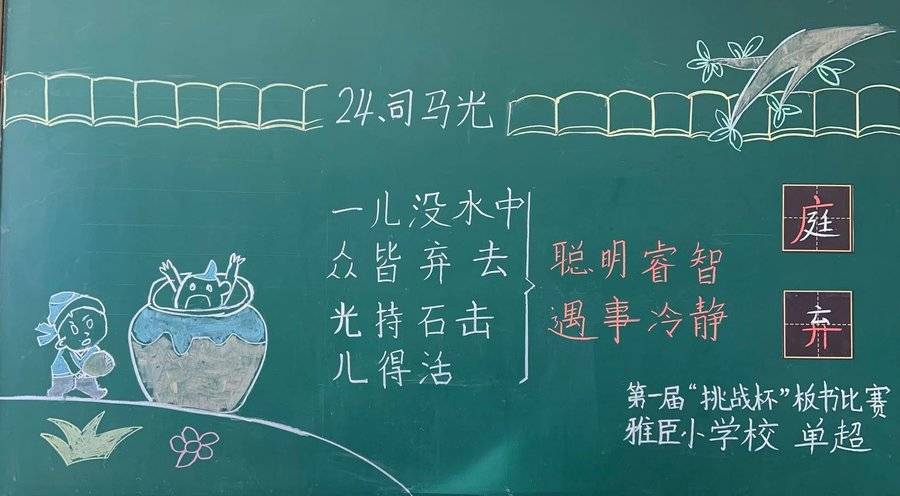 24、司马光
一儿没水中
众皆弃去
光持石击
儿得活
聪明睿智
遇事冷静
庭
弃
第一届“挑战杯”板书比赛
雅臣小学校 单超